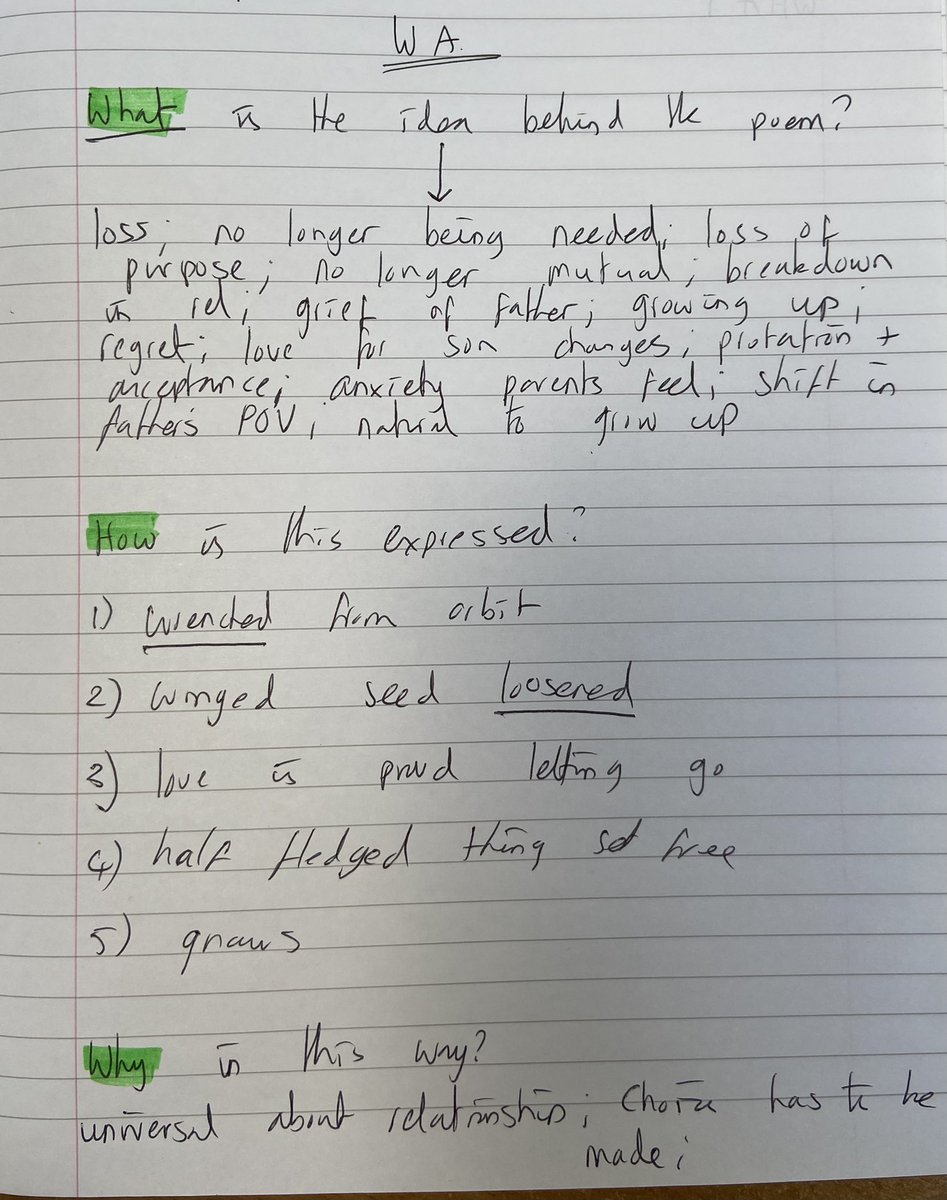 W A.
What is the idea behind the poem?
loss; no longer being needed; loss of
purpose; no longer mutual; breakdown
in rel; grief of father; growing up;
regret; love for son changes; +
acceptance; anxiety parents feel; shift in
father's POV; natural to grow up
How is this expressed?
1) wrenched from orbit
2) winged seed loosened
3) love is proud letting go
4) half fledged thing set free
5) gnaws
Why in this way?
universal about relationships; Choice has to be
made;